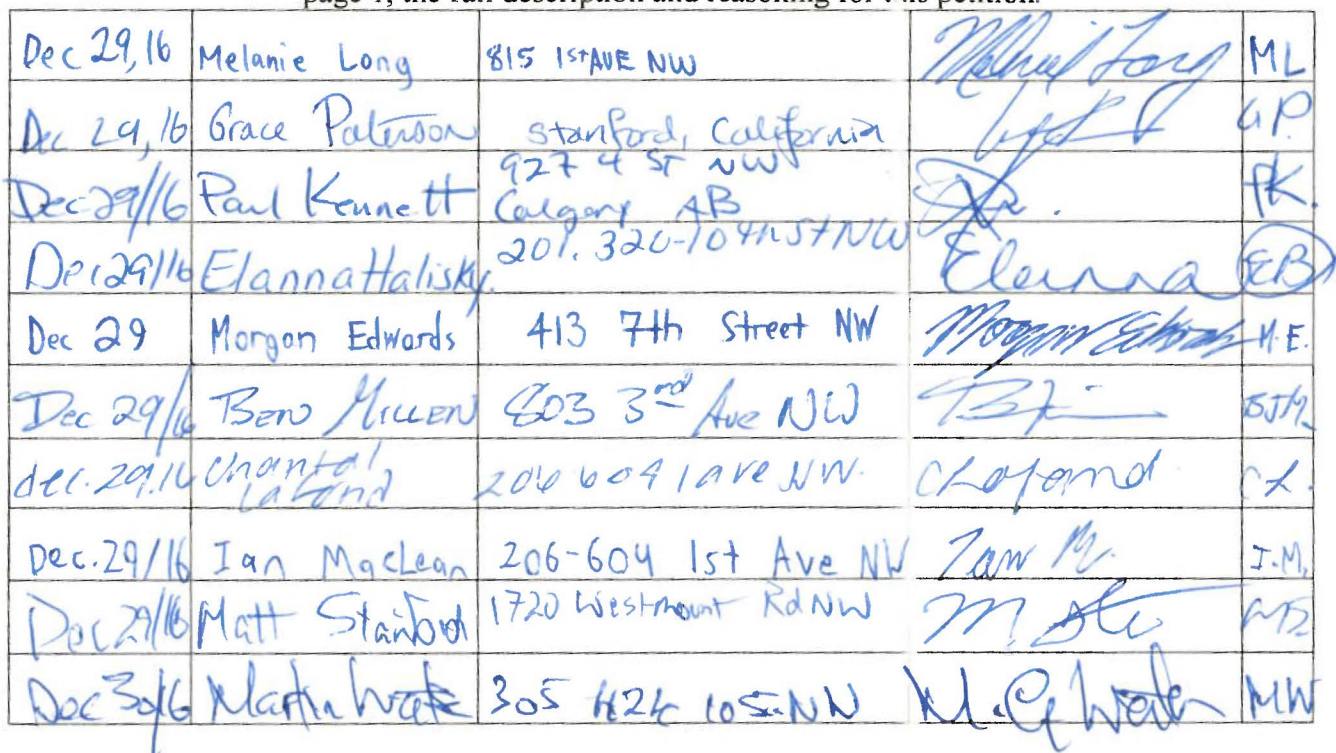 page 1, the full description and reasoning for this petition.
Dec 29, 16 Melanie Long 815 1st AVE NW Melanie Long ML
Dec 29, 16 Grace Paterson Stanford, California G.P.
Dec 29/16 Paul Kennett 927 4 ST NW PK.
Calgary AB
Dec 29/16 Elanna Halisky. 201. 320-10th St NW Elanna EB
Dec 29 Morgan Edwards 413 7th Street NW Morgan Edwards M.E.
Dec 29/16 Ben Millen 803 3rd Ave NW BJM
dec. 29.16 Chantal 206 604 1 ave NW. CLafond CL.
Lafond
Dec. 29/16 Ian MacLean 206-604 1st Ave NW Ian M. I.M.
Dec 29/16 Matt 1720 Westmount Rd NW
Dec 30/16 Martin 305 NW MW